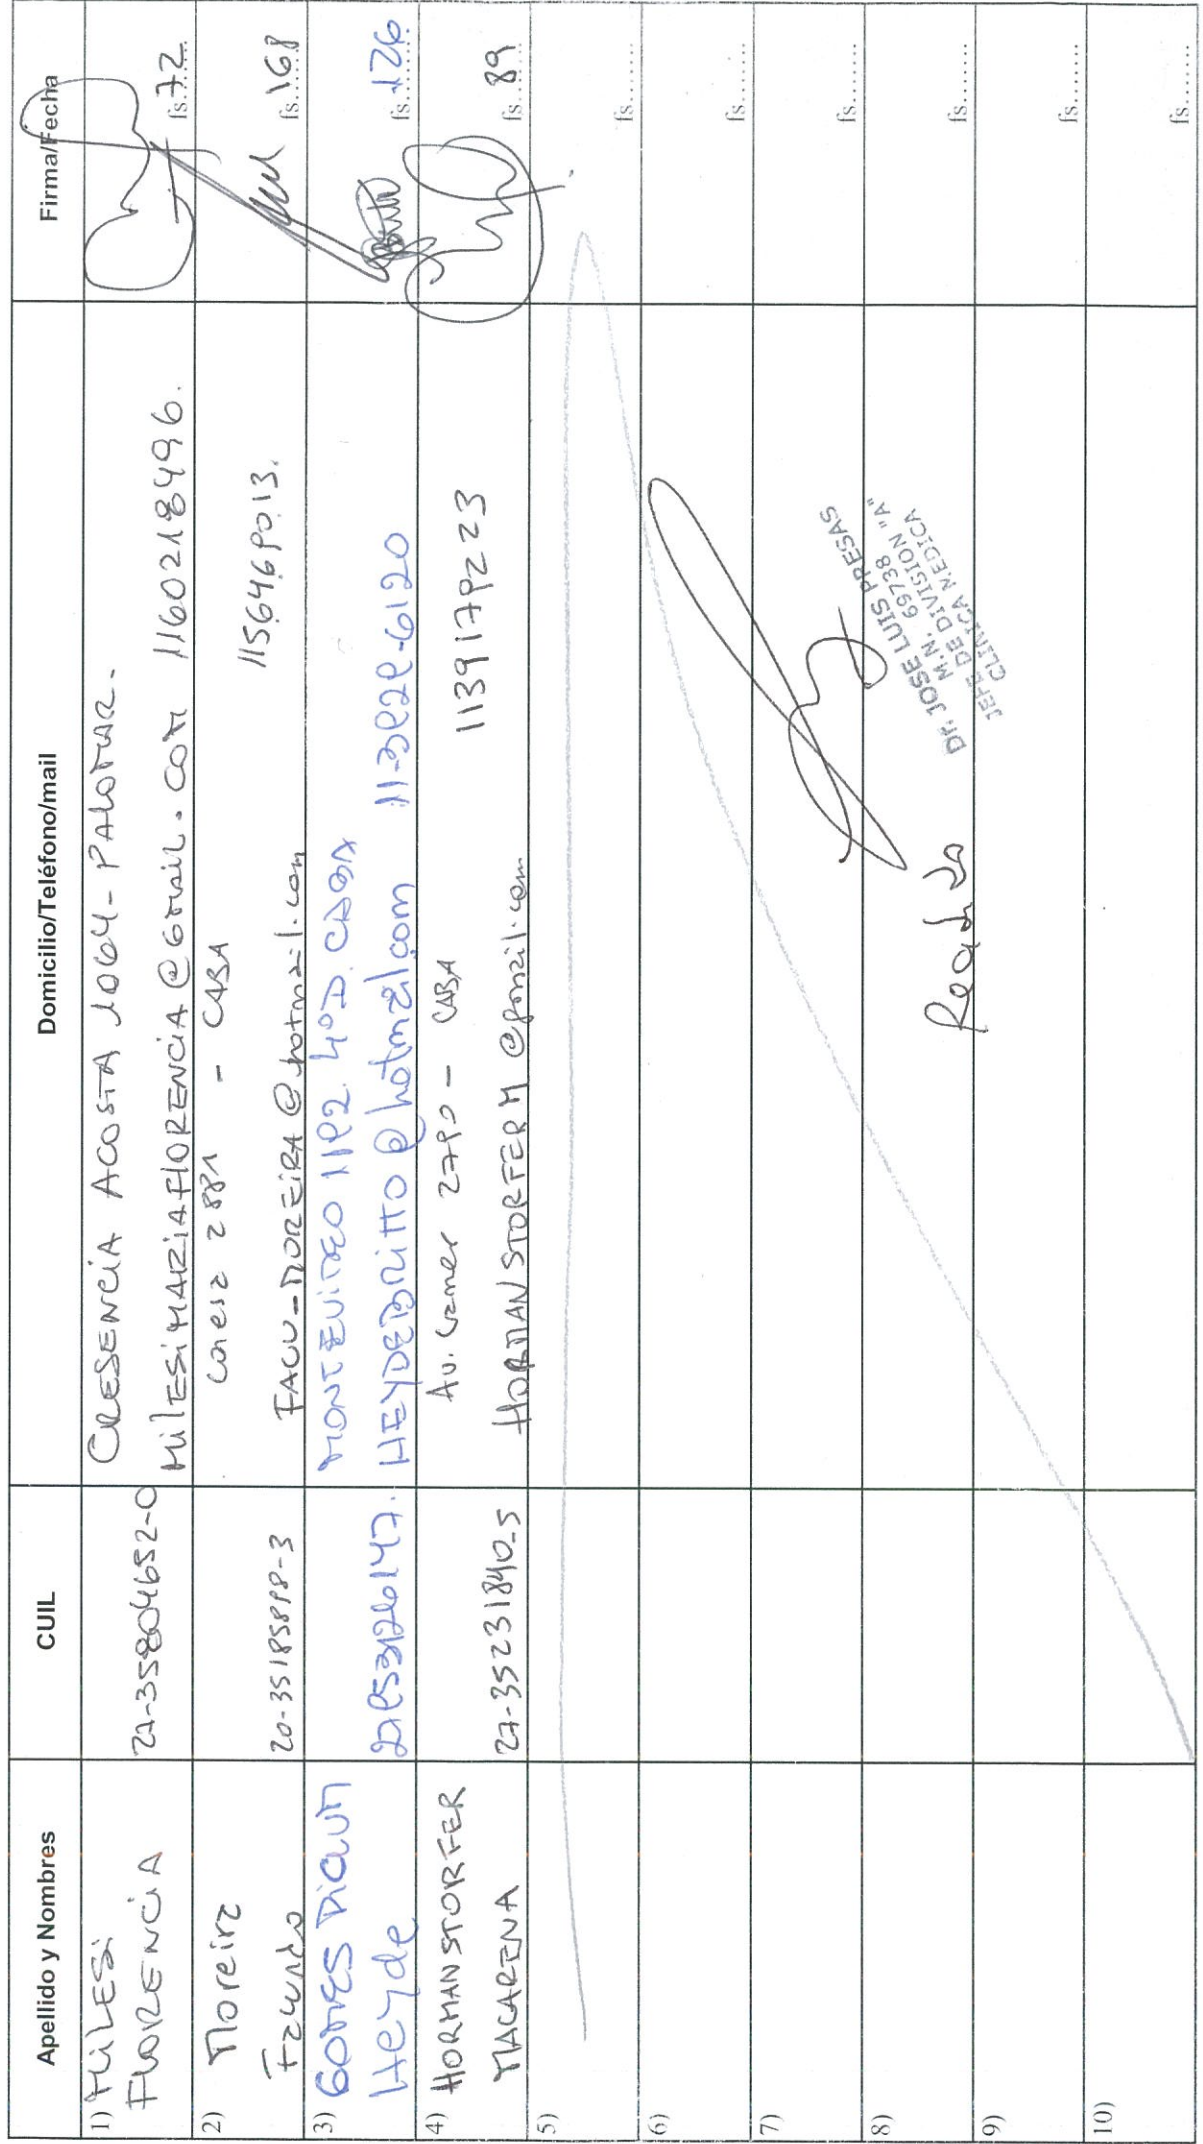 Apellido y Nombres CUIL Domicilio/Teléfono/mail Firma/Fecha
1) MILESI
FLORENCIA
27-35804652-0
CRESENCIA ACOSTA 1064 - PALOMAR.
MILESIMARIAFLORENCIA@GMAIL.COM 1160218496.
fs. 72
2) Moreira
Facundo
20-35185898-3
2881 - CABA
1156469013.
FACU_MOREIRA@hotmail.com
fs. 168
3) GOMES DIAUM
Heyde
MONTEVIDEO 1192 4ºD. CABA
HEYDEBRITTO@hotmail.com 11-3829-6120
fs. 126
4) HORMANSTORFER
MACARENA
27-35231840-5
Av. Cramer 2790 - CABA
1139179223
HORMANSTORFERM@gmail.com
fs. 89
5)
fs........
6)
fs........
7)
fs........
8)
fs........
9)
fs........
10)
fs........
Dr. JOSE LUIS PRESAS
M.N. 69738
JEFE DE DIVISION "A"
CLINICA MEDICA